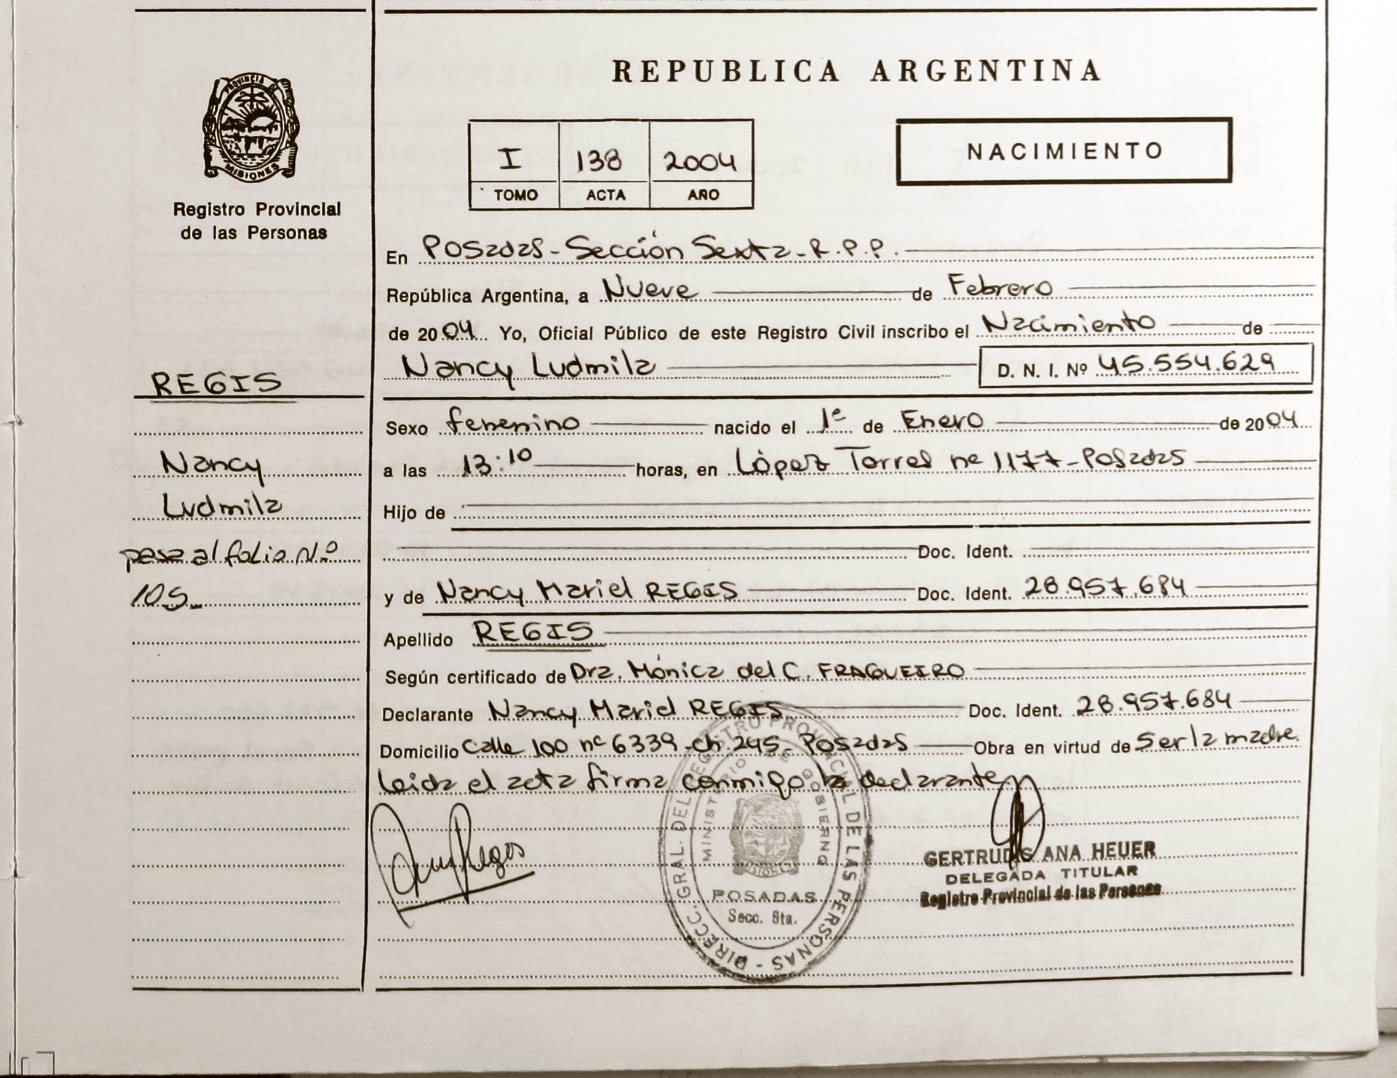 REPUBLICA ARGENTINA
PROVINCIA DE
MISIONES
Registro Provincial
de las Personas
I 138 2004
TOMO ACTA AÑO
NACIMIENTO
En Posadas - Sección Sexta - R.P.P.
República Argentina, a Nueve de Febrero
de 2004 Yo, Oficial Público de este Registro Civil inscribo el Nacimiento de
Nancy Ludmila D. N. I. Nº 45.554.629
REGIS
Nancy
Ludmila
pasa al folio N.º
105_
Sexo femenino nacido el 1º de Enero de 2004
a las 13:10 horas, en López Torres nº 1177 - Posadas
Hijo de
Doc. Ident.
y de Nancy Mariel REGIS Doc. Ident. 28.957.684
Apellido REGIS
Según certificado de Dra. Mónica del C. FRAGUEIRO
Declarante Nancy Mariel REGIS Doc. Ident. 28.957.684
Domicilio Calle 100 nº 6339 - ch. 245 - Posadas Obra en virtud de Ser la madre
leida el acta firma conmigo la declarante
DIRECC. GRAL. DEL REGISTRO PROVINCIAL DE LAS PERSONAS -
MINISTERIO DE GOBIERNO
MISIONES
POSADAS
Secc. 6ta.
GERTRUDIS ANA HEUER
DELEGADA TITULAR
Registro Provincial de las Personas